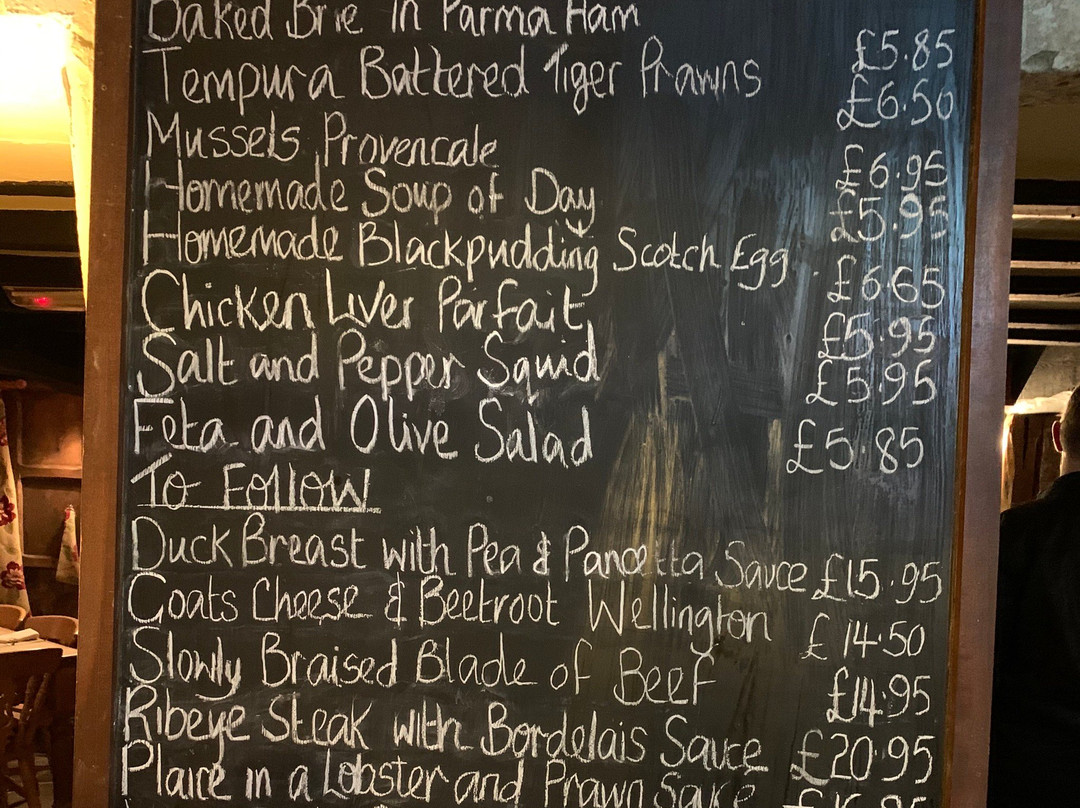 Baked Brie in Parma Ham £5.85
Tempura Battered Tiger Prawns £6.50
Mussels Provencale £6.95
Homemade Soup of Day £5.95
Homemade Blackpudding Scotch Egg £6.65
Chicken Liver Parfait £5.95
Salt and Pepper Squid £5.95
Feta and Olive Salad £5.85
To Follow
Duck Breast with Pea & Pancetta Sauce £15.95
Goats Cheese & Beetroot Wellington £14.50
Slowly Braised Blade of Beef £14.95
Ribeye Steak with Bordelais Sauce £20.95
Plaice in a Lobster and Prawn Sauce